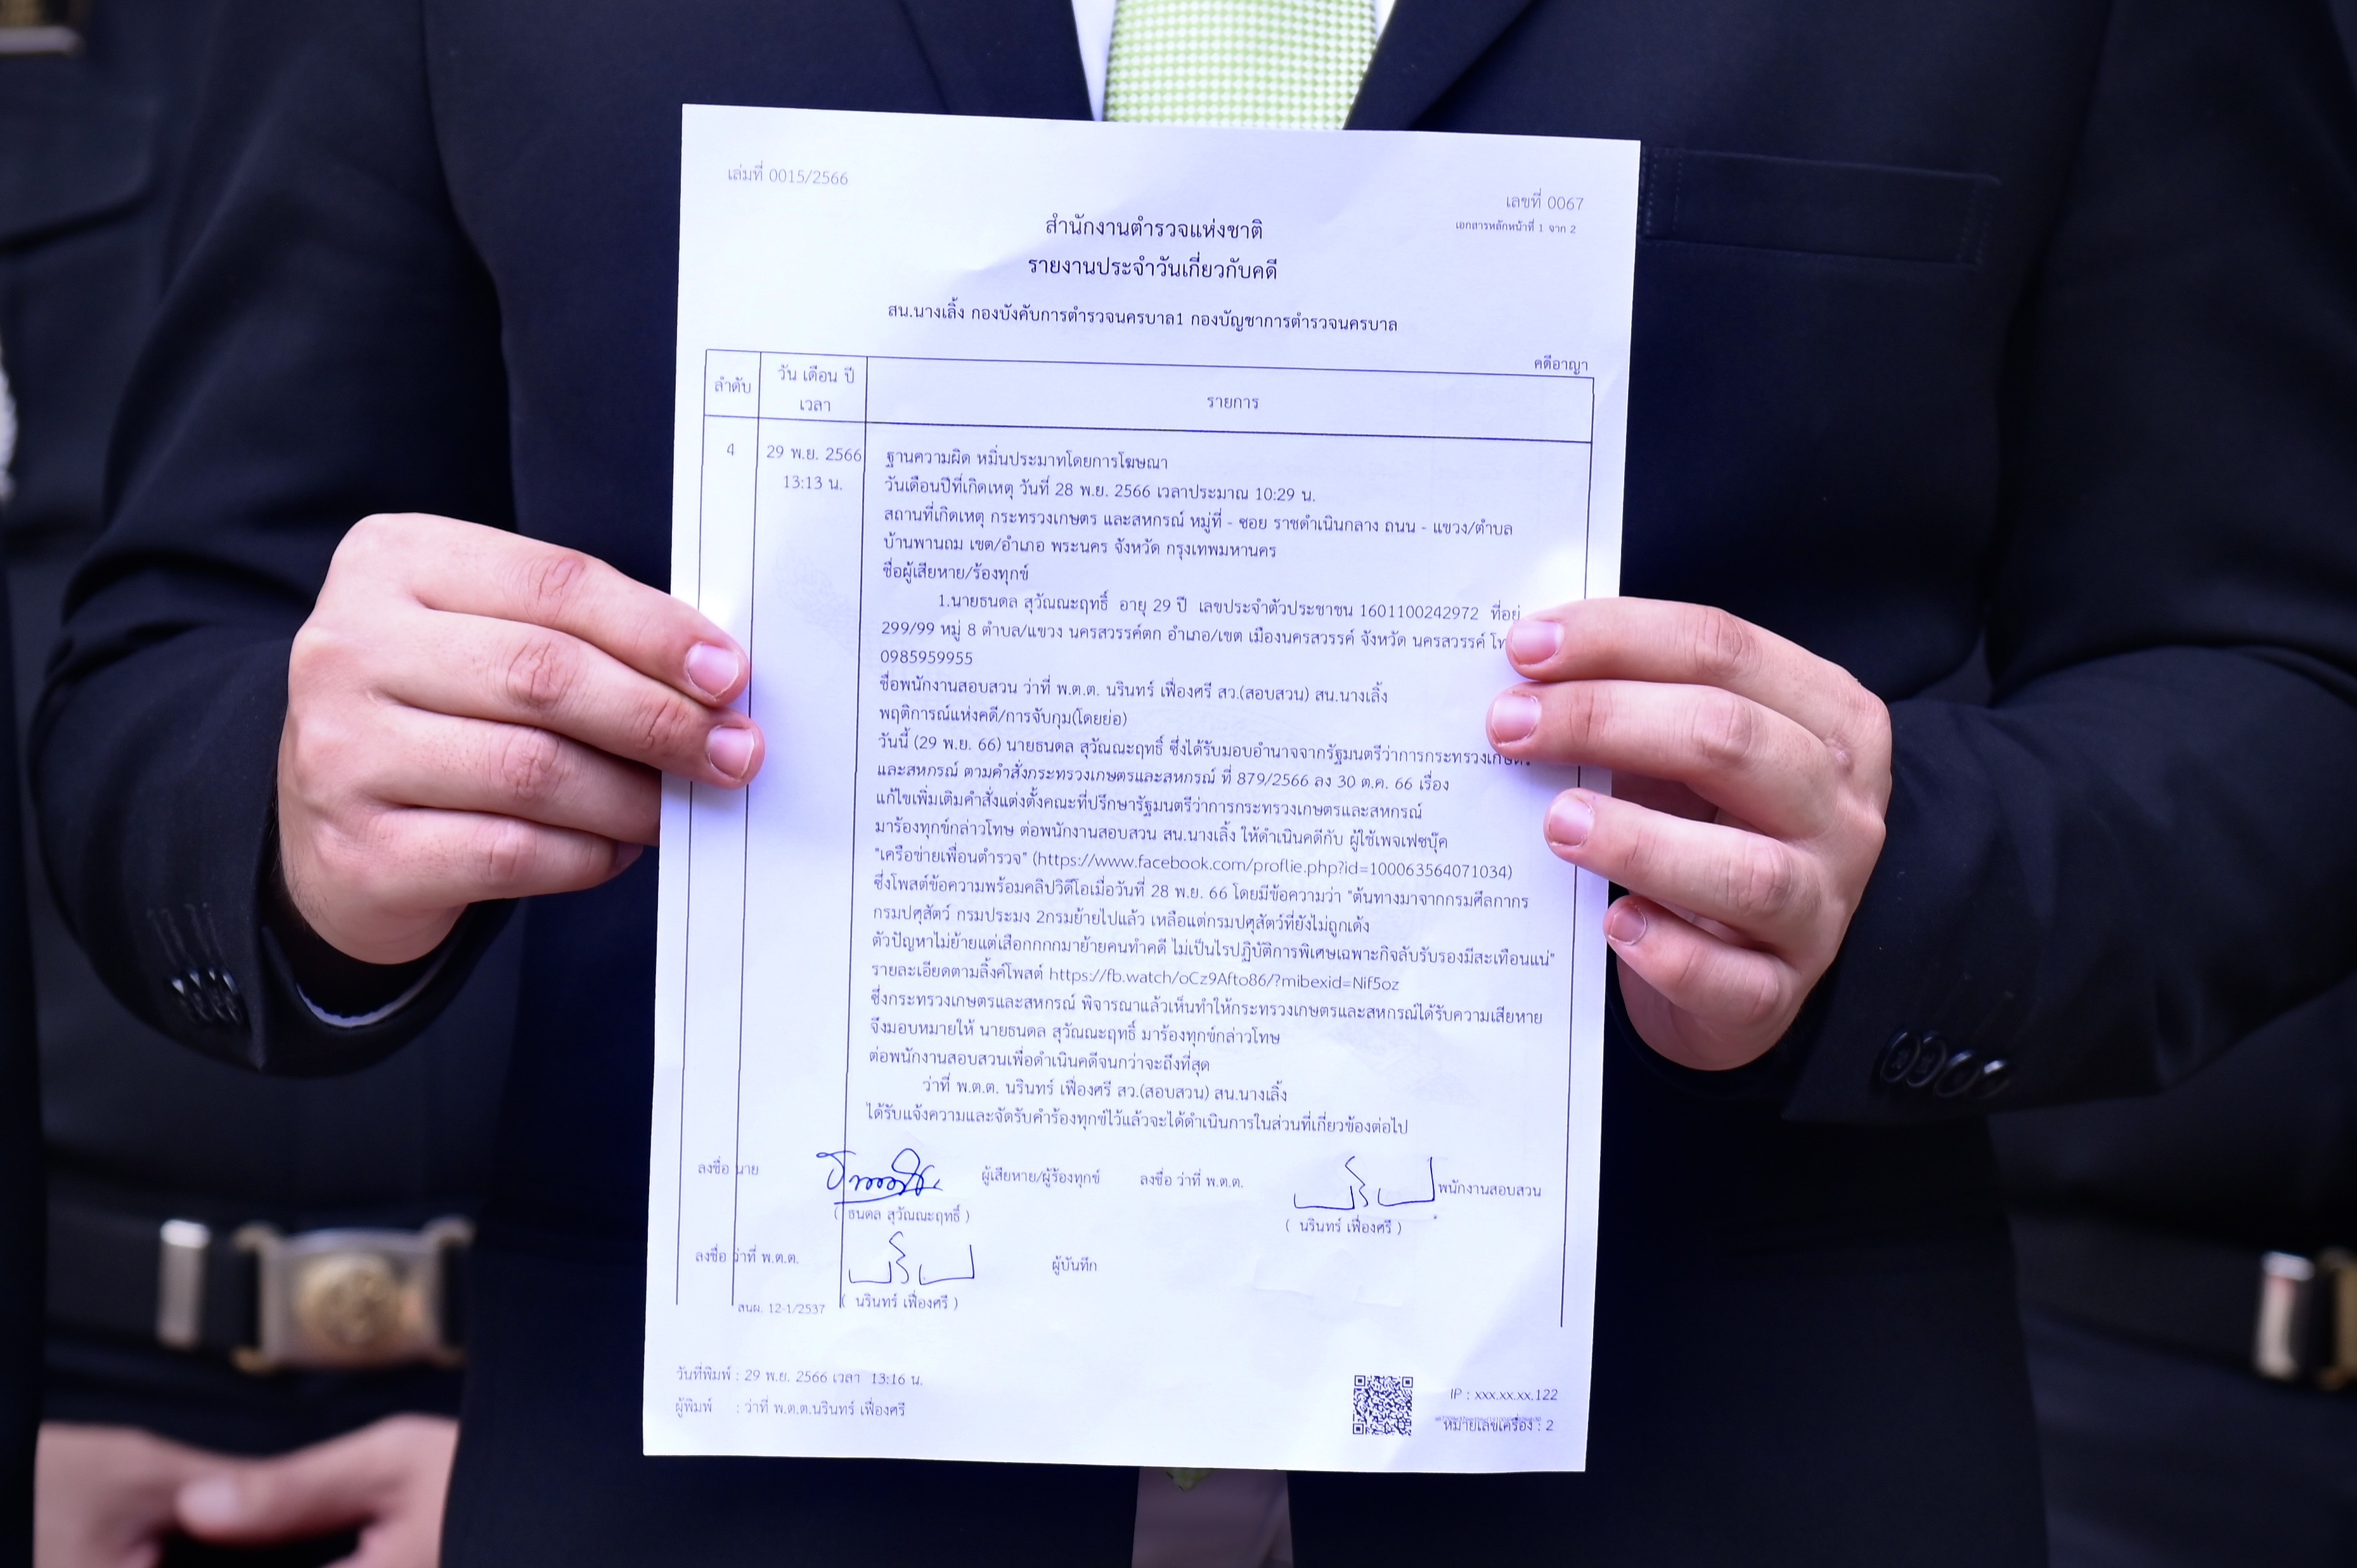 เล่มที่ 0015/2566
เลขที่ 0067
เอกสารหลักหน้าที่ 1 จาก 2
สำนักงานตำรวจแห่งชาติ
รายงานประจำวันเกี่ยวกับคดี
สน.นางเลิ้ง กองบังคับการตำรวจนครบาล1 กองบัญชาการตำรวจนครบาล
คดีอาญา
ลำดับ วัน เดือน ปี เวลา รายการ
4 29 พ.ย. 2566 ฐานความผิด หมิ่นประมาทโดยการโฆษณา
13:13 น. วันเดือนปีที่เกิดเหตุ วันที่ 28 พ.ย. 2566 เวลาประมาณ 10:29 น.
สถานที่เกิดเหตุ กระทรวงเกษตร และสหกรณ์ หมู่ที่ - ซอย ราชดำเนินกลาง ถนน - แขวง/ตำบล
บ้านพานถม เขต/อำเภอ พระนคร จังหวัด กรุงเทพมหานคร
ชื่อผู้เสียหาย/ร้องทุกข์
1.นายธนดล สุวัณณะฤทธิ์ อายุ 29 ปี เลขประจำตัวประชาชน 1601100242972 ที่อยู่
299/99 หมู่ 8 ตำบล/แขวง นครสวรรค์ตก อำเภอ/เขต เมืองนครสวรรค์ จังหวัด นครสวรรค์
0985959955
ชื่อพนักงานสอบสวน ว่าที่ พ.ต.ต. นรินทร์ เฟื่องศรี สว.(สอบสวน) สน.นางเลิ้ง
พฤติการณ์แห่งคดี/การจับกุม(โดยย่อ)
วันนี้ (29 พ.ย. 66) นายธนดล สุวัณณะฤทธิ์ ซึ่งได้รับมอบอำนาจจากรัฐมนตรีว่าการกระทรวงเกษตร
และสหกรณ์ ตามคำสั่งกระทรวงเกษตรและสหกรณ์ ที่ 879/2566 ลง 30 ต.ค. 66 เรื่อง
แก้ไขเพิ่มเติมคำสั่งแต่งตั้งคณะที่ปรึกษารัฐมนตรีว่าการกระทรวงเกษตรและสหกรณ์
มาร้องทุกข์กล่าวโทษ ต่อพนักงานสอบสวน สน.นางเลิ้ง ให้ดำเนินคดีกับ ผู้ใช้เพจเฟซบุ๊ค
"เครือข่ายเพื่อนตำรวจ" (https://www.facebook.com/proflie.php?id=100063564071034)
ซึ่งโพสต์ข้อความพร้อมคลิปวิดีโอเมื่อวันที่ 28 พ.ย. 66 โดยมีข้อความว่า "ต้นทางมาจากกรมศีลกากร
กรมปศุสัตว์ กรมประมง 2กรมย้ายไปแล้ว เหลือแต่กรมปศุสัตว์ที่ยังไม่ถูกเด้ง
ตัวปัญหาไม่ย้ายแต่เสือกกกกมาย้ายคนทำคดี ไม่เป็นไรปฏิบัติการพิเศษเฉพาะกิจลับรับรองมีสะเทือนแน่"
รายละเอียดตามลิ้งค์โพสต์ https://fb.watch/oCz9Afto86/?mibexid=Nif5oz
ซึ่งกระทรวงเกษตรและสหกรณ์ พิจารณาแล้วเห็นทำให้กระทรวงเกษตรและสหกรณ์ได้รับความเสียหาย
จึงมอบหมายให้ นายธนดล สุวัณณะฤทธิ์ มาร้องทุกข์กล่าวโทษ
ต่อพนักงานสอบสวนเพื่อดำเนินคดีจนกว่าจะถึงที่สุด
ว่าที่ พ.ต.ต. นรินทร์ เฟื่องศรี สว.(สอบสวน) สน.นางเลิ้ง
ได้รับแจ้งความและจัดรับคำร้องทุกข์ไว้แล้วจะได้ดำเนินการในส่วนที่เกี่ยวข้องต่อไป
ลงชื่อ นาย ผู้เสียหาย/ผู้ร้องทุกข์ ลงชื่อ ว่าที่ พ.ต.ต. พนักงานสอบสวน
( ธนดล สุวัณณะฤทธิ์ ) ( นรินทร์ เฟื่องศรี )
ลงชื่อ ว่าที่ พ.ต.ต. ผู้บันทึก
( นรินทร์ เฟื่องศรี )
สนผ. 12-1/2537
วันที่พิมพ์ : 29 พ.ย. 2566 เวลา 13:16 น. IP : xxx.xx.xx.122
ผู้พิมพ์ : ว่าที่ พ.ต.ต.นรินทร์ เฟื่องศรี หมายเลขเครื่อง : 2